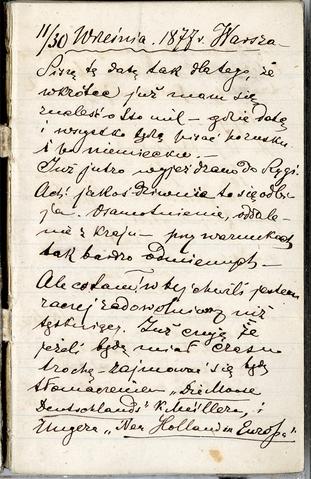 11/30 Września. 1877 r. Warsza-
Piszę tę datę tak dlatego, że
wkrótce już mam się
znaleść o sto mil – gdzie datę
i wszystko będę pisać po rusku
i po niemiecku. –
Już jutro wyjeżdżam do Rygi.
Ach! jakoś dziwnie to się odbi-
ja. Osamotnienie, oddale-
nie z kraju – przy warunkach
tak bardzo odmiennych –
Ale co tam! w tej chwili jestem
raczej zadowolniony niż
tęskniący. Już czuję że
jeżeli będę miał czasu
trochę – zajmować się będę
tłómaczeniem „Die Moose
Deutschlands" K. Müllera, i
Ungera „Neu Holland in Europa".